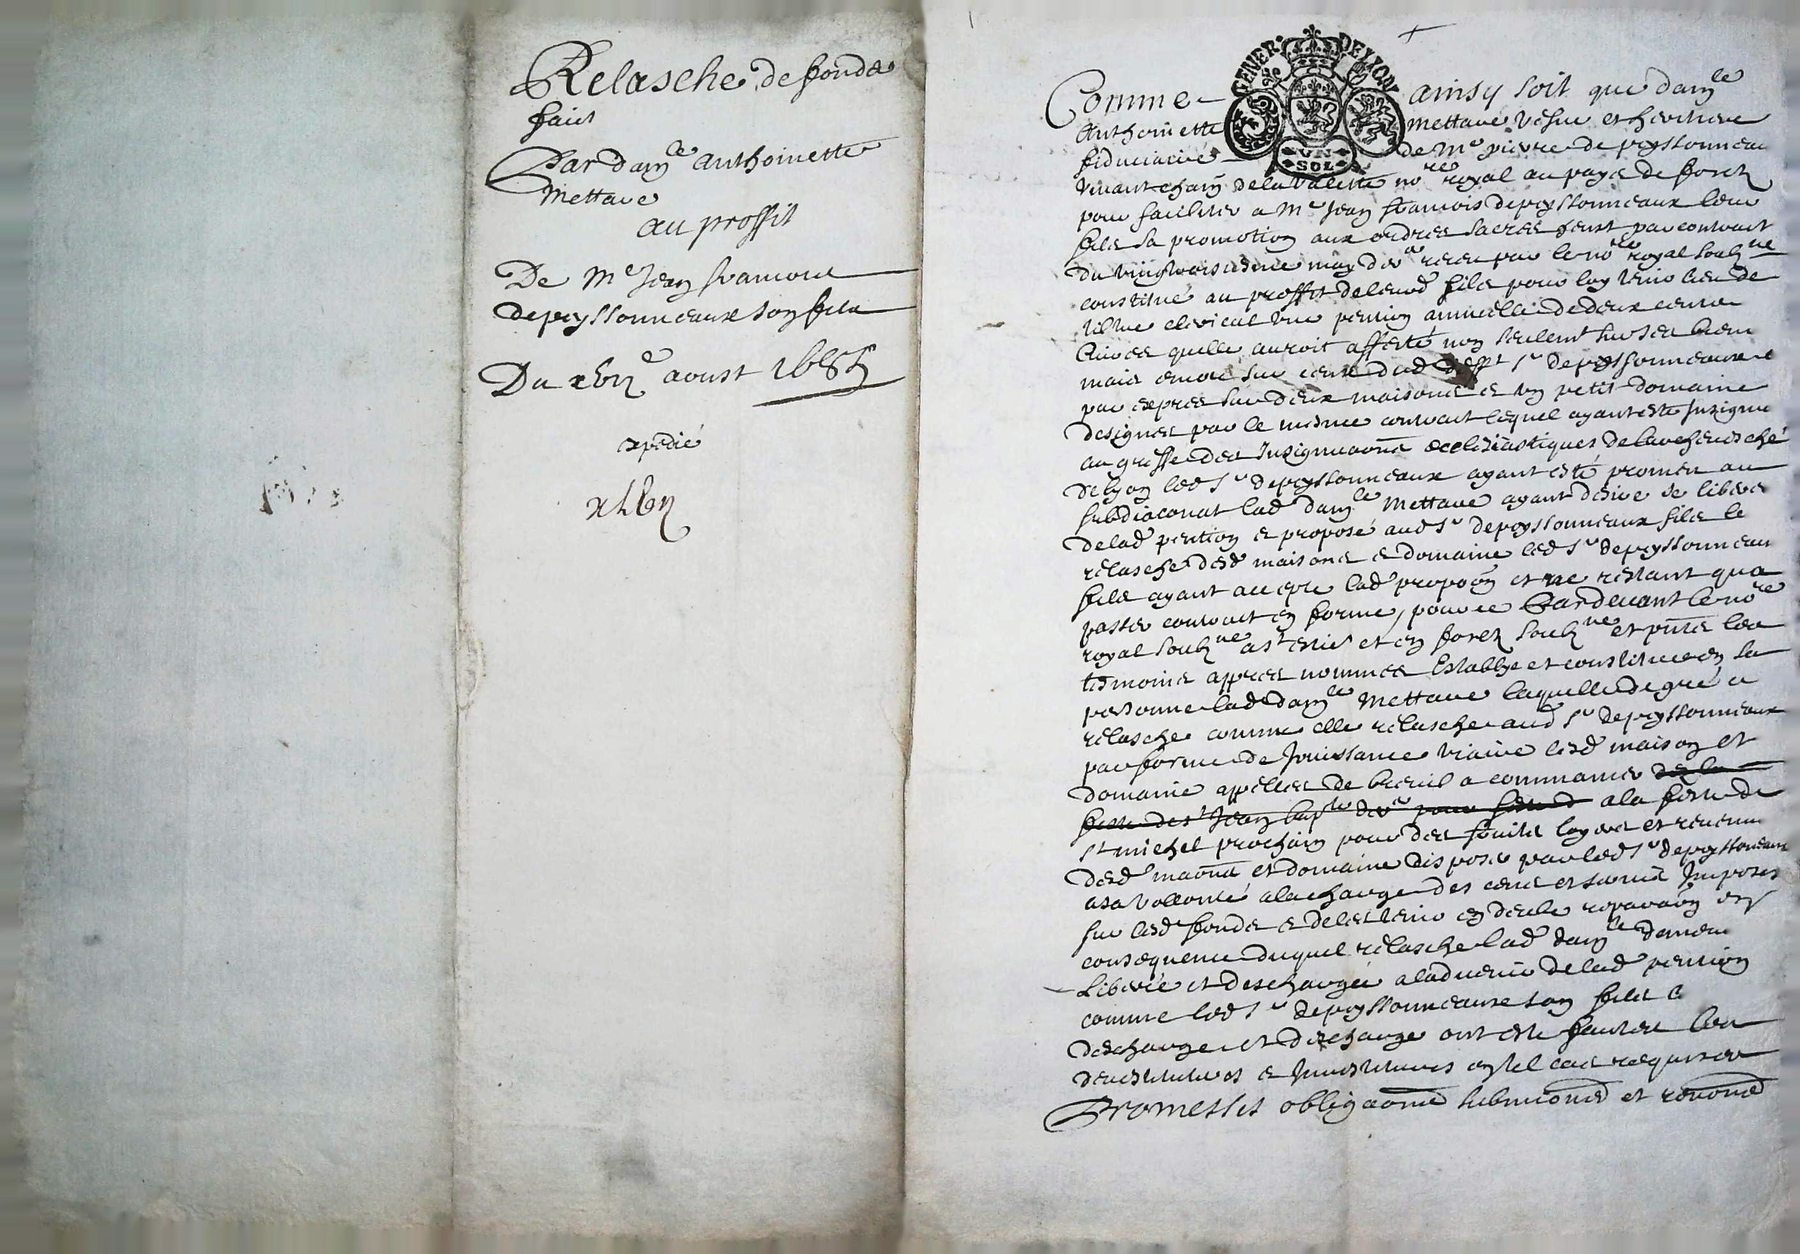 Relasche de fonds
faict
Par dam^lle anthoinette
Mettare
au proffit
De M^e Jean francois
depeyssonneaux son fils
Du xbii^e aoust 1685
expédié
GENER. DE LYON
UN
SOL
Comme ainsy soit que dam^lle
anthoinette Mettare vefve et heritiere
fiduciaire de M^e pierre depeyssonneau
vivant chatn de la valette no^re royal au pays de forez
pour faciliter a M^e Jean francois depeyssonneaux leur
fils sa promotion aux ordres sacres heust par contract
du vingtroisiesme may d^r receu par le no^re royal soubz^ne
constitué au proffit de leurd fils pour luy tenir lieu de
tiltre clerical une pention annuelle de deux cents
livres quelle auroit affecté non seulem^t sur ses biens
mais encore sur ceux dud deff^t s^r depeyssonneaux et
par expres sur deux maisons et un petit domaine
designes par le mesme contract lequel ayant esté Insigné
au greffe des Insignuaons ecclesiastiques de larchevesché
de lyon led s^r depeyssonneaux ayant esté promeu au
subdiaconat lad dam^lle Mettare ayant desiré se liberer
de lad pention et proposé aud s^r depeyssonneaux fils le
relasche desd maisons et domaine led s^r depeyssonneau
fils ayant accepté lad propoon et ne restant qua
passer contract en forme, pour ce Pardevant le no^re
royal soubz^ne a s^t et en forez soubz^ne et pnts les
tesmoins appres nommes Establye et constituee en sa
personne lad dam^lle Mettare laquelle de gré a
relasché comme elle relasche aud s^r depeyssonneaux
par forme de Jouissance viaire lesd maison et
domaine appelles de breuil a commancer des la
feste de s^t Jean bap^te d^r pour a la feste de
s^t michel prochain pour des fruits loyers et revenus
desd maons et domaine disposer par led s^r depeyssoneaux
a sa vollonté a la charge des cens et servis Imposes
sur lesd fonds et de les tenir en deube reparaon en
consequence duquel relasche lad dam^lle demeure
Liberée et deschargée a ladvenir de lad pention
comme led s^r depeyssonneaux son fils
descharge et descharge ont esté faictes les
devestitures et Investitures en tel cas requises
Promesses obligaons submions et renons